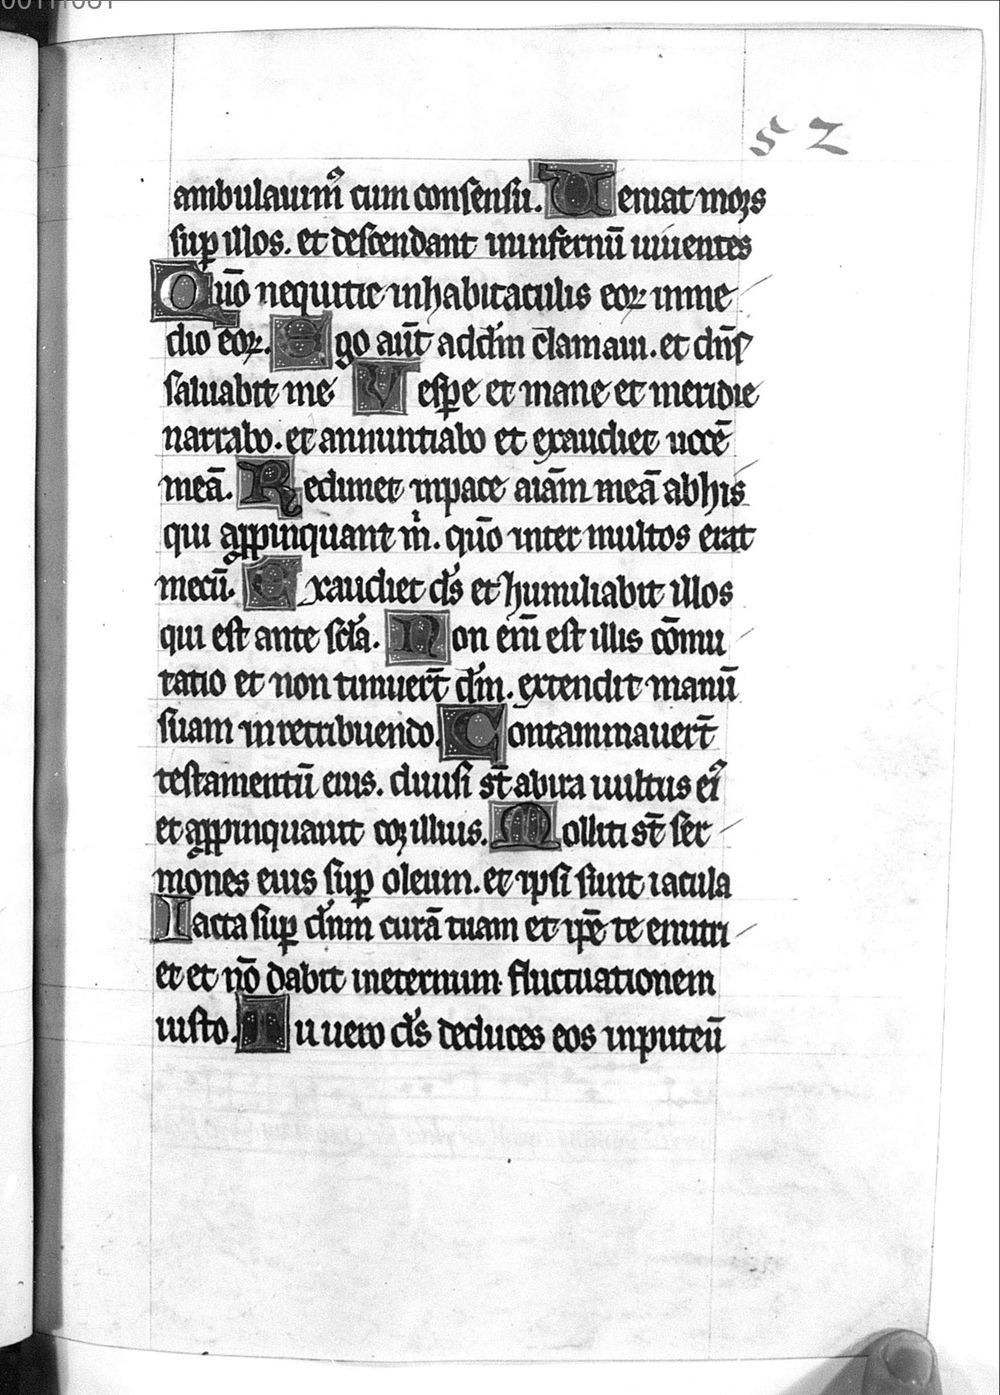 52
ambulauim᷒ cum consensu. Ueniat mors
sup illos. et descendant in infernū uiuentes
Quō nequitie in habitaculis eoꝝ in me
dio eoꝝ. Ego aūt ad dm̄ clamaui. et dn̄s
saluabit me Uespe et mane et meridie
narrabo. et annuntiabo et exaudiet uocē
meā. Redimet in pace aīam meā ab his
qui appinquant m̄. quō inter multos erat
mecū. Exaudiet ds̄ et humiliabit illos
qui est ante scl̄a. Non enī est illis cōmu
tatio et non timuer̄t dm̄. extendit manū
suam in retribuendo Contaminauer̄t
testamentū eius. diuisi st̄ ab ira uultus eiꝰ
et appinquauit cor illius. Molliti st̄ ser
mones eius sup oleum. et ipsi sunt iacula
Iacta sup dn̄m curā tuam et ip̄e te enutri
et et nō dabit in eternum fluctuationem
iusto. Tu uero ds̄ deduces eos in puteū